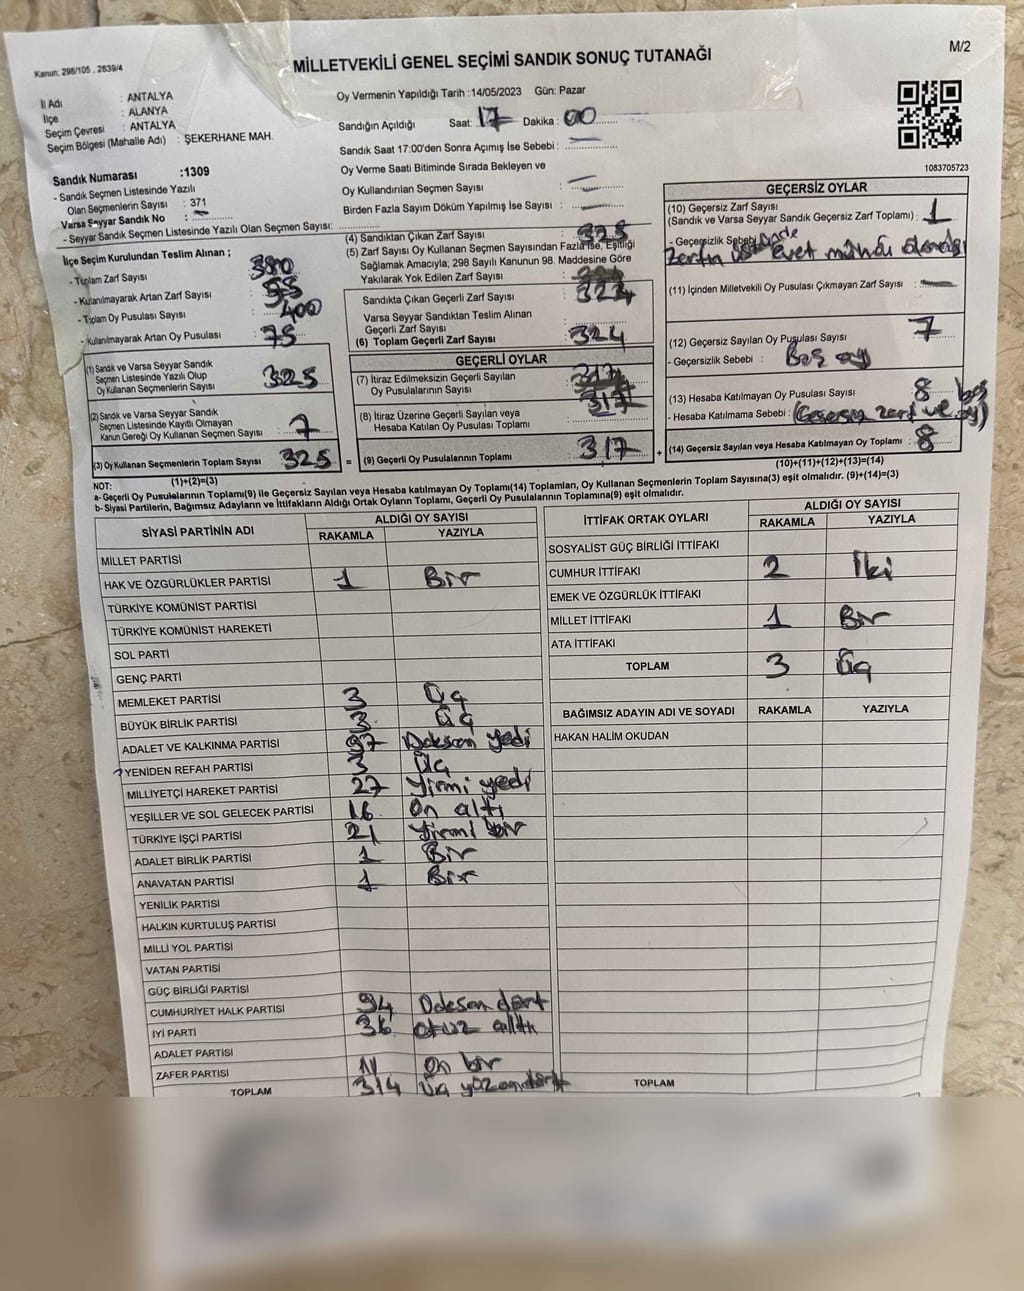 Kanun; 298/105 , 2839/4
MİLLETVEKİLİ GENEL SEÇİMİ SANDIK SONUÇ TUTANAĞI
M/2
İl Adı : ANTALYA
İlçe : ALANYA
Seçim Çevresi : ANTALYA
Seçim Bölgesi (Mahalle Adı) : ŞEKERHANE MAH.
Oy Vermenin Yapıldığı Tarih :14/05/2023 Gün: Pazar
Sandığın Açıldığı Saat: 17 Dakika : 00
Sandık Saat 17:00'den Sonra Açımış İse Sebebi :
Oy Verme Saati Bitiminde Sırada Bekleyen ve
Oy Kullandırılan Seçmen Sayısı
Birden Fazla Sayım Döküm Yapılmış İse Sayısı :
1083705723
Sandık Numarası :1309
- Sandık Seçmen Listesinde Yazılı
Olan Seçmenlerin Sayısı : 371
Varsa Seyyar Sandık No :
- Seyyar Sandık Seçmen Listesinde Yazılı Olan Seçmen Sayısı:
İlçe Seçim Kurulundan Teslim Alınan ;
- Toplam Zarf Sayısı : 380
- Kullanılmayarak Artan Zarf Sayısı : 55
- Toplam Oy Pusulası Sayısı : 400
- Kullanılmayarak Artan Oy Pusulası : 75
(1) Sandık ve Varsa Seyyar Sandık
Seçmen Listesinde Yazılı Olup
Oy Kullanan Seçmenlerin Sayısı : 325
(2) Sandık ve Varsa Seyyar Sandık
Seçmen Listesinde Kayıtlı Olmayan
Kanun Gereği Oy Kullanan Seçmen Sayısı : 7
(3) Oy Kullanan Seçmenlerin Toplam Sayısı 325
(1)+(2)=(3)
(4) Sandıktan Çıkan Zarf Sayısı : 325
(5) Zarf Sayısı Oy Kullanan Seçmen Sayısından Fazla İse, Eşitliği
Sağlamak Amacıyla; 298 Sayılı Kanunun 98. Maddesine Göre
Yakılarak Yok Edilen Zarf Sayısı :
Sandıkta Çıkan Geçerli Zarf Sayısı : 324
Varsa Seyyar Sandıktan Teslim Alınan
Geçerli Zarf Sayısı :
(6) Toplam Geçerli Zarf Sayısı : 324
GEÇERLİ OYLAR
(7) İtiraz Edilmeksizin Geçerli Sayılan
Oy Pusulalarının Sayısı : 317
(8) İtiraz Üzerine Geçerli Sayılan veya
Hesaba Katılan Oy Pusulası Toplamı : 317
= (9) Geçerli Oy Pusulalarının Toplamı : 317
GEÇERSİZ OYLAR
(10) Geçersiz Zarf Sayısı
(Sandık ve Varsa Seyyar Sandık Geçersiz Zarf Toplamı) : 1
- Geçersizlik Sebebi
Zarfın üstünde evet mührü olması
(11) İçinden Milletvekili Oy Pusulası Çıkmayan Zarf Sayısı :
(12) Geçersiz Sayılan Oy Pusulası Sayısı : 7
- Geçersizlik Sebebi : Boş oy
(13) Hesaba Katılmayan Oy Pusulası Sayısı : 8
- Hesaba Katılmama Sebebi : (Geçersiz zarf ve boş oy)
+ (14) Geçersiz Sayılan veya Hesaba Katılmayan Oy Toplamı : 8
(10)+(11)+(12)+(13)=(14)
NOT:
a- Geçerli Oy Pusulalarının Toplamı(9) ile Geçersiz Sayılan veya Hesaba katılmayan Oy Toplamı(14) Toplamları, Oy Kullanan Seçmenlerin Toplam Sayısına(3) eşit olmalıdır. (9)+(14)=(3)
b- Siyasi Partilerin, Bağımsız Adayların ve İttifakların Aldığı Ortak Oyların Toplamı, Geçerli Oy Pusulalarının Toplamına(9) eşit olmalıdır.
SİYASİ PARTİNİN ADI ALDIĞI OY SAYISI
RAKAMLA YAZIYLA
MİLLET PARTİSİ
HAK VE ÖZGÜRLÜKLER PARTİSİ 1 Bir
TÜRKİYE KOMÜNİST PARTİSİ
TÜRKİYE KOMÜNİST HAREKETİ
SOL PARTİ
GENÇ PARTİ
MEMLEKET PARTİSİ 3 Üç
BÜYÜK BİRLİK PARTİSİ 3 Üç
ADALET VE KALKINMA PARTİSİ 97 Doksan yedi
YENİDEN REFAH PARTİSİ 3 Üç
MİLLİYETÇİ HAREKET PARTİSİ 27 Yirmi yedi
YEŞİLLER VE SOL GELECEK PARTİSİ 16 On altı
TÜRKİYE İŞÇİ PARTİSİ 21 Yirmi bir
ADALET BİRLİK PARTİSİ 1 Bir
ANAVATAN PARTİSİ 1 Bir
YENİLİK PARTİSİ
HALKIN KURTULUŞ PARTİSİ
MİLLİ YOL PARTİSİ
VATAN PARTİSİ
GÜÇ BİRLİĞİ PARTİSİ
CUMHURİYET HALK PARTİSİ 94 Doksan dört
İYİ PARTİ 36 otuz altı
ADALET PARTİSİ
ZAFER PARTİSİ 11 On bir
TOPLAM 314 Üç yüz on dört
İTTİFAK ORTAK OYLARI ALDIĞI OY SAYISI
RAKAMLA YAZIYLA
SOSYALİST GÜÇ BİRLİĞİ İTTİFAKI
CUMHUR İTTİFAKI 2 İki
EMEK VE ÖZGÜRLÜK İTTİFAKI
MİLLET İTTİFAKI 1 Bir
ATA İTTİFAKI
TOPLAM 3 Üç
BAĞIMSIZ ADAYIN ADI VE SOYADI RAKAMLA YAZIYLA
HAKAN HALİM OKUDAN
TOPLAM